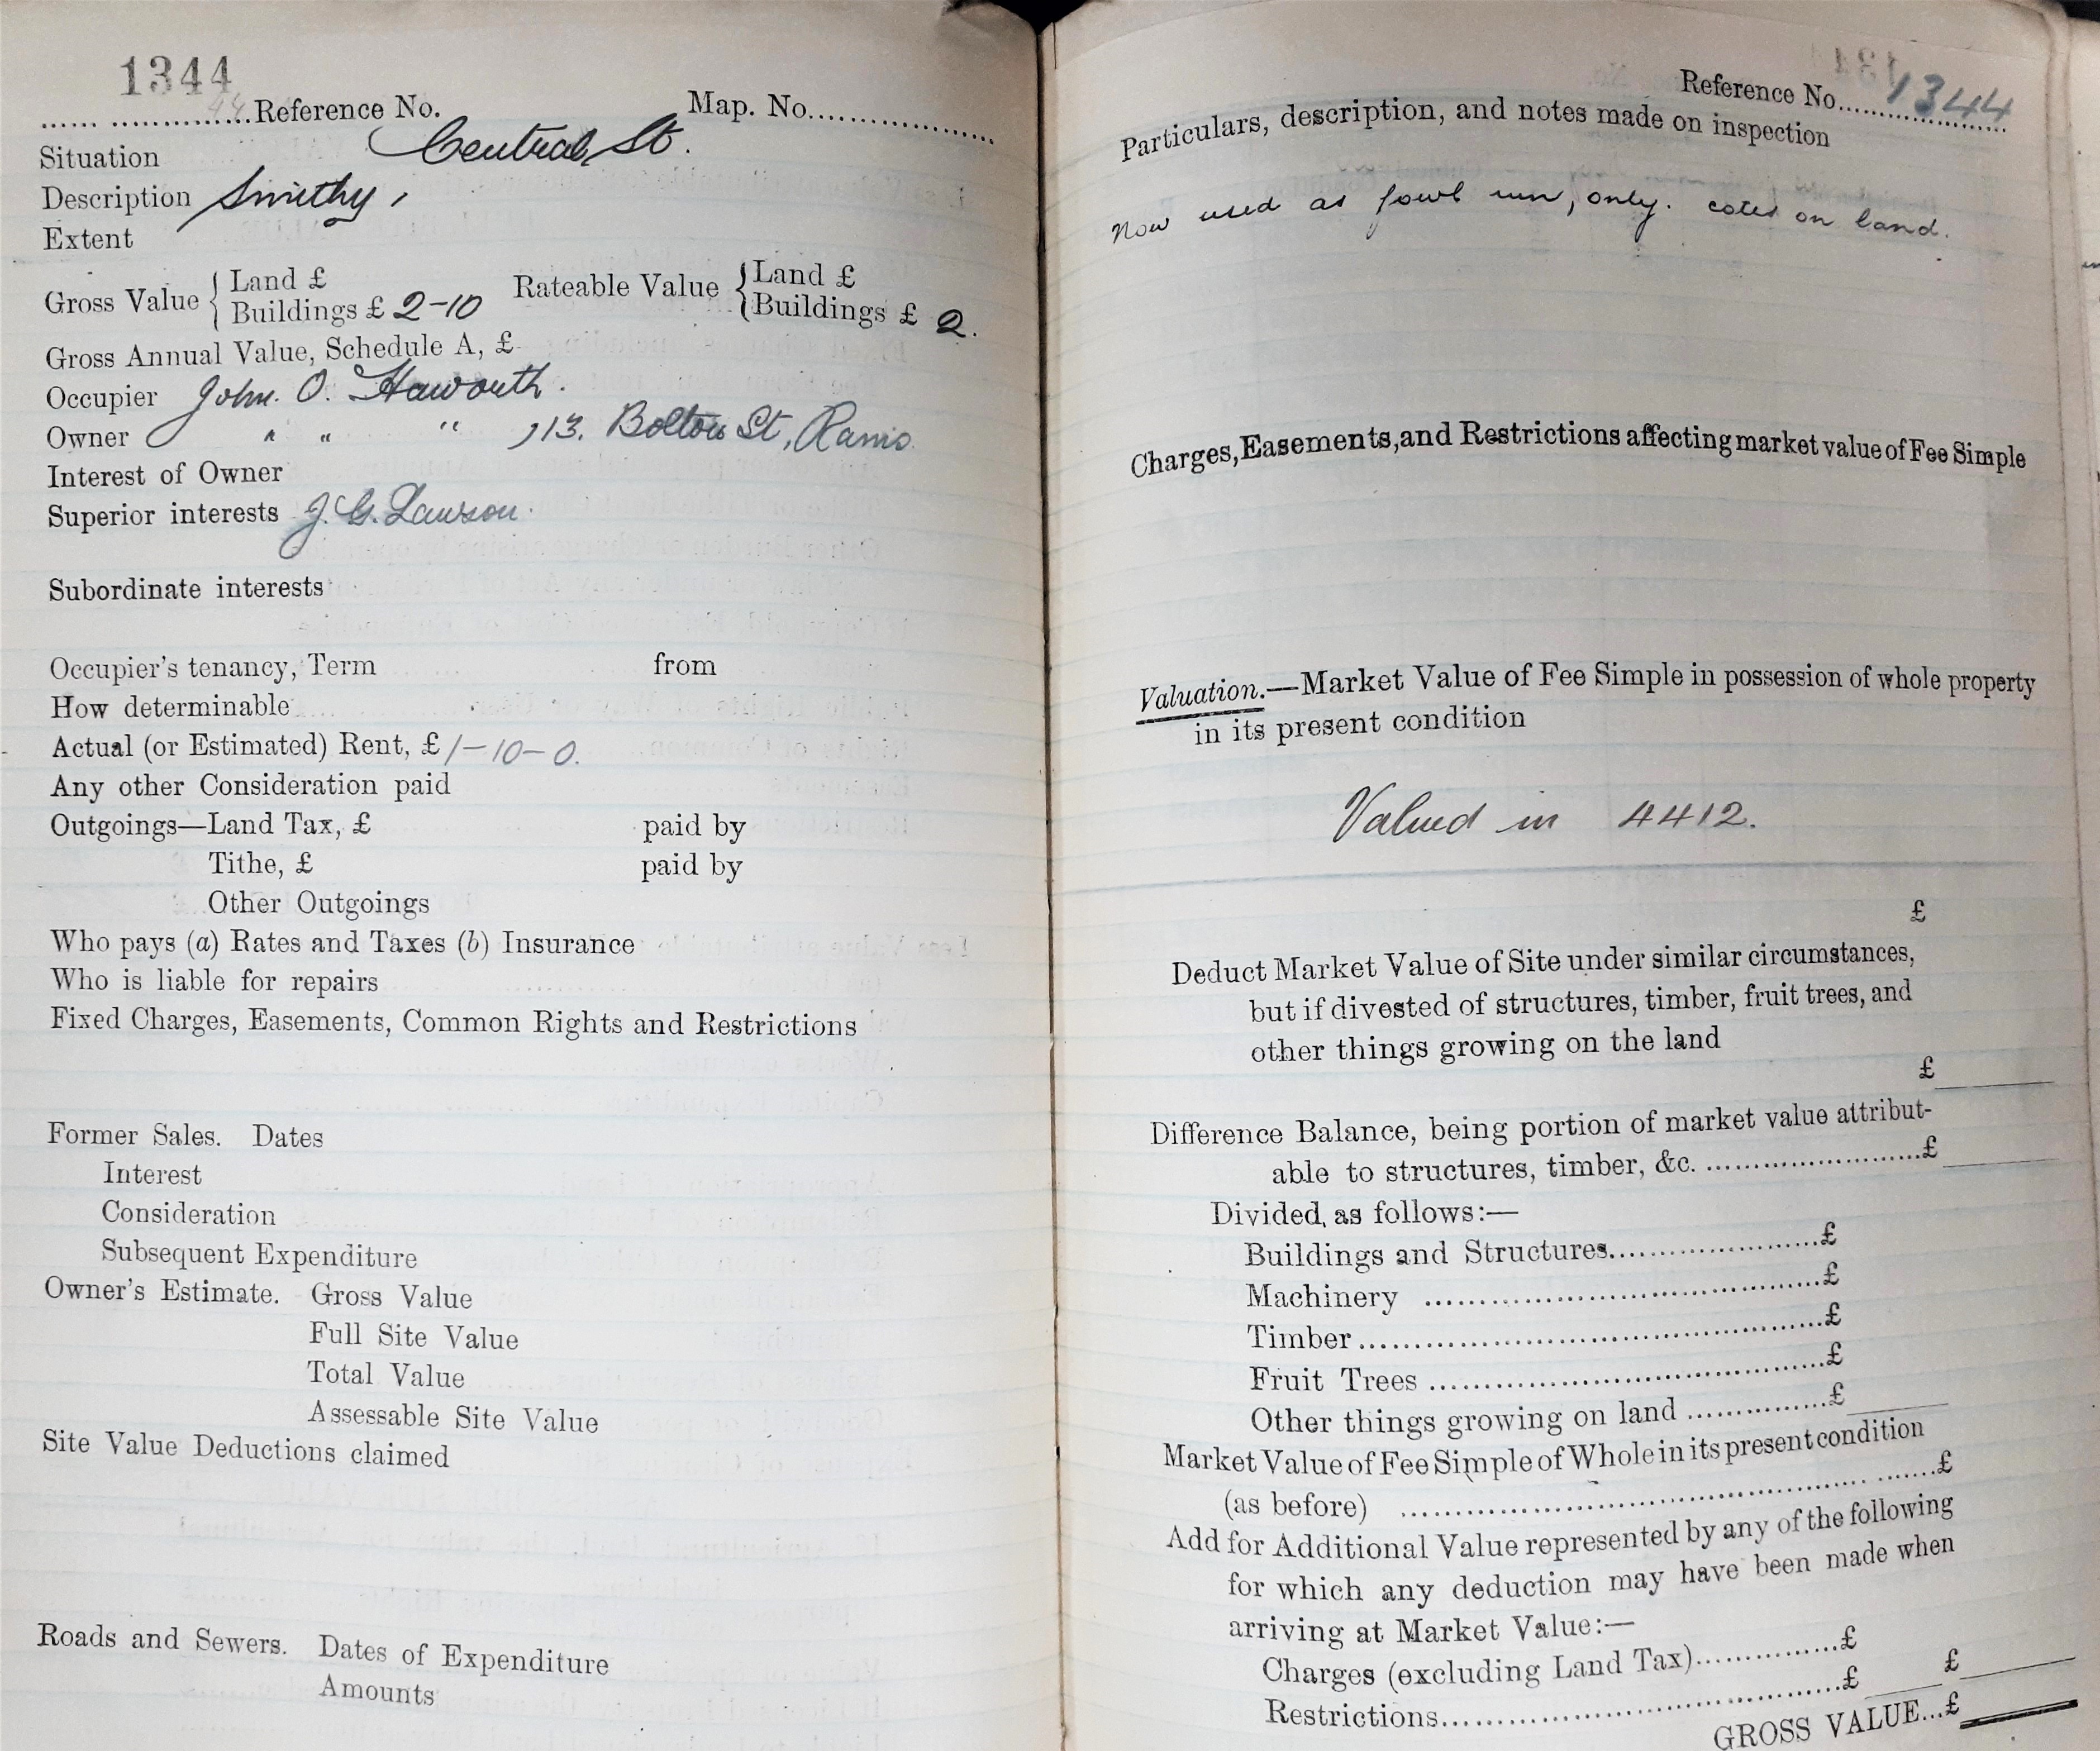 1344
...... ...............Reference No. Map. No....................
Situation Central St.
Description Smithy,
Extent
Gross Value { Land £ Rateable Value { Land £
Buildings £ 2-10 Buildings £ 2.
Gross Annual Value, Schedule A, £
Occupier John. O. Haworth.
Owner " " " , 13. Bolton St, Rams.
Interest of Owner
Superior interests J. G. Lawson.
Subordinate interests
Occupier's tenancy, Term from
How determinable
Actual (or Estimated) Rent, £ 1-10-0.
Any other Consideration paid
Outgoings—Land Tax, £ paid by
Tithe, £ paid by
Other Outgoings
Who pays (a) Rates and Taxes (b) Insurance
Who is liable for repairs
Fixed Charges, Easements, Common Rights and Restrictions
Former Sales. Dates
Interest
Consideration
Subsequent Expenditure
Owner's Estimate. Gross Value
Full Site Value
Total Value
Assessable Site Value
Site Value Deductions claimed
Roads and Sewers. Dates of Expenditure
Amounts
Reference No. 1344
Particulars, description, and notes made on inspection
Now used as fowl run, only. cotes on land.
Charges, Easements, and Restrictions affecting market value of Fee Simple
Valuation.—Market Value of Fee Simple in possession of whole property
in its present condition
Valued in 4412.
£
Deduct Market Value of Site under similar circumstances,
but if divested of structures, timber, fruit trees, and
other things growing on the land
£
Difference Balance, being portion of market value attribut-
able to structures, timber, &c. ..........................£
Divided, as follows:—
Buildings and Structures.......................£
Machinery ............................................£
Timber...................................................£
Fruit Trees ............................................£
Other things growing on land ................£
Market Value of Fee Simple of Whole in its present condition
(as before) ............................................................£
Add for Additional Value represented by any of the following
for which any deduction may have been made when
arriving at Market Value:—
Charges (excluding Land Tax)...............£
Restrictions............................................£ £
GROSS VALUE...£